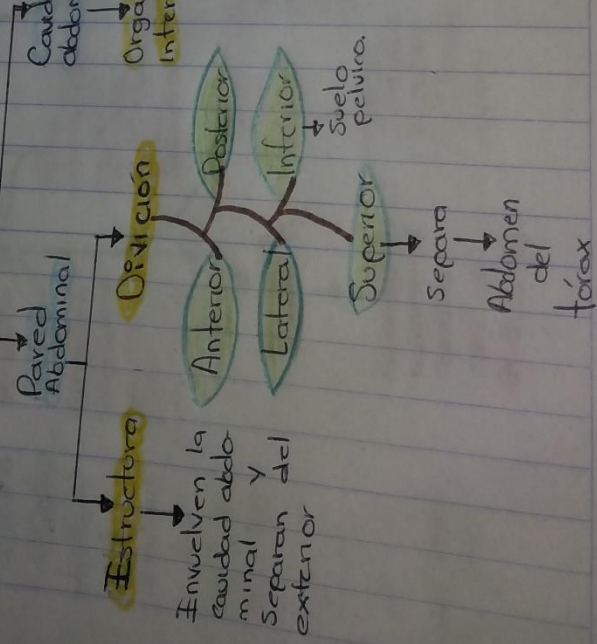 Pared
Abdominal
Estructura
Envuelven la
cavidad abdo-
minal y
Separan del
exterior
Divición
Anterior
Posterior
Lateral
Inferior
Suelo
pelvico.
Superior
Separa
Abdomen
del
tórax